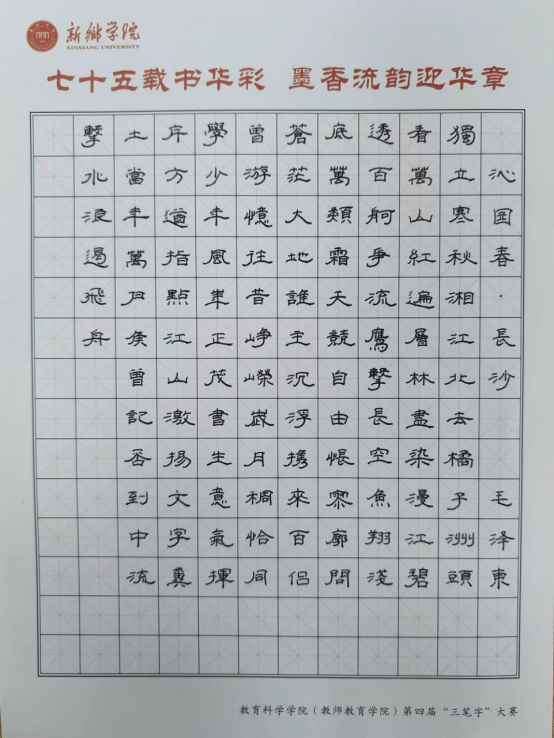 新鄉学院
XINXIANG UNIVERSITY
七十五载书华彩 墨香流韵迎华章
沁国春·長沙 毛泽東
獨立寒秋湘江北去橘子洲頭
看萬山紅遍層林盡染漫江碧
透百舸爭流鷹擊長空魚翔淺
底萬類霜天競自由悵寥廓問
蒼茫大地誰主沉浮攜來百侣
曾游憶往昔崢嶸歲月稠恰同
學少年風華正茂書生意氣揮
斥方遒指點江山激揚文字糞
土當年萬户侯曾記否到中流
擊水浪遏飛舟
教育科学学院（教师教育学院）第四届“三笔字”大赛